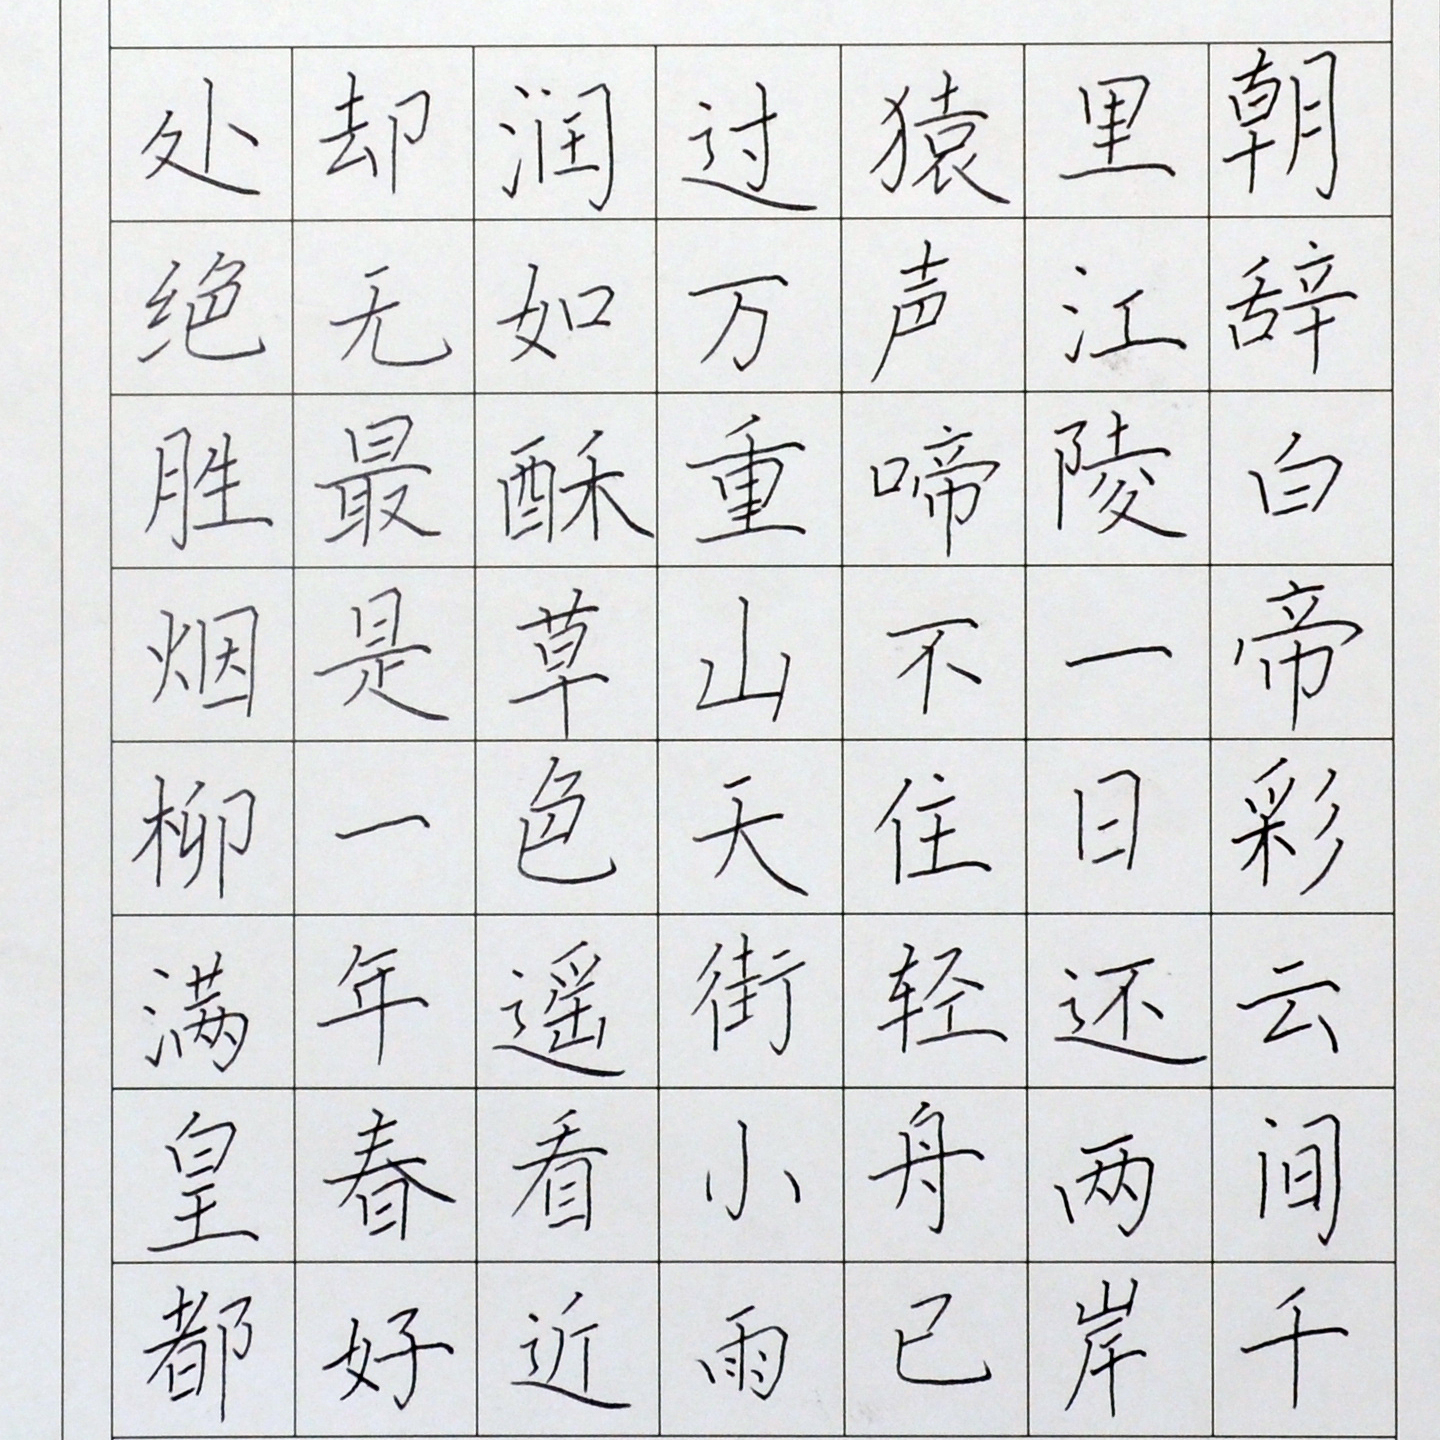 朝辞白帝彩云间千
里江陵一日还两岸
猿声啼不住轻舟已
过万重山天街小雨
润如酥草色遥看近
却无最是一年春好
处绝胜烟柳满皇都